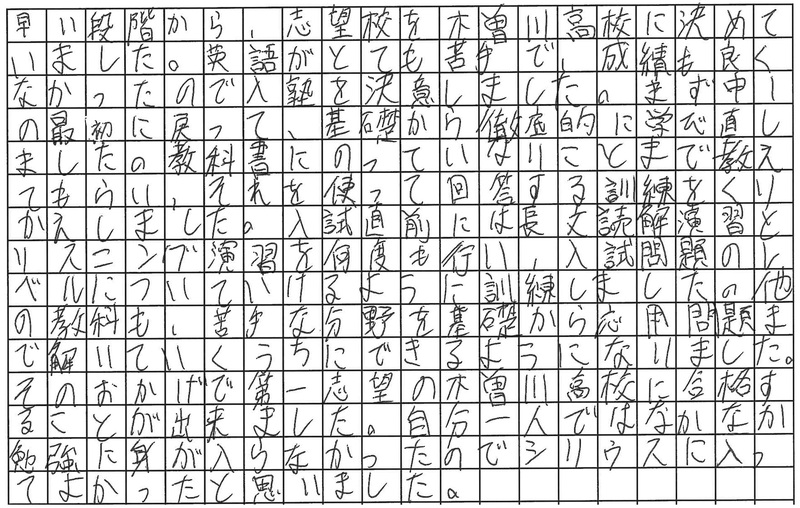 早い段階から、志望校を木曽川高校に決めて
いました。英語がとても苦手で、成績も良く
なかったので入塾を決意しました。まず中一
の最初に戻って、基礎から徹底的に学び直し
ました。教科書にのっていないことまで教え
てもらい、それを使って回答する訓練をくり
かえしました。入試直前には長文読解演習と
リスニング演習を何度も行い、入試問題のレ
ベルについていけるように訓練しました。他
の教科も、苦手な分野を基礎から応用問題ま
で解いていくうちにできるようになりました。
そのおかげで第一志望の木曽川高校に合格す
ることが出来ました。自分一人ではなかなか
勉強に身が入らなかったのでシリウスに入っ
てよかったと思いました。